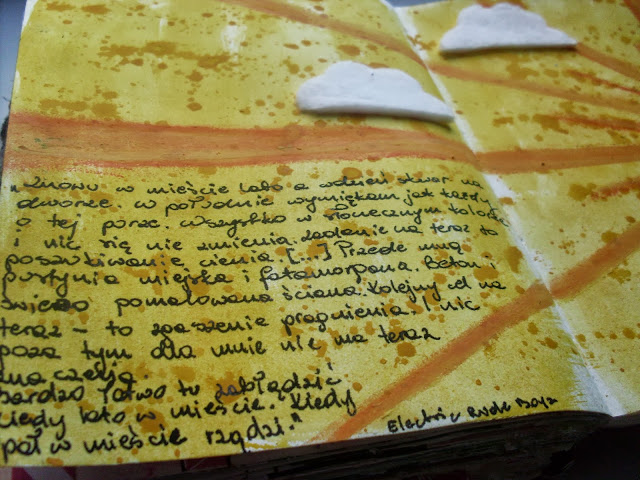 "Znowu w mieście lato a wodzień skwar na
dworze. W południe wymiękam jak każdy
o tej porze. Wszystko w słonecznym kolorze
i nic się nie zmienia. Zadanie na teraz to
poszukiwanie cienia. [...] Przede mną
pustynia miejska i fatamorgana. Beton i
świeżo pomalowana ściana. Kolejny cel na
teraz - to zgaszenie pragnienia. I nic
poza tym dla mnie nie ma teraz
znaczenia
bardzo łatwo tu zabłądzić
kiedy lato w mieście. Kiedy
pół w mieście rządzi."
Electric Rude Boyz